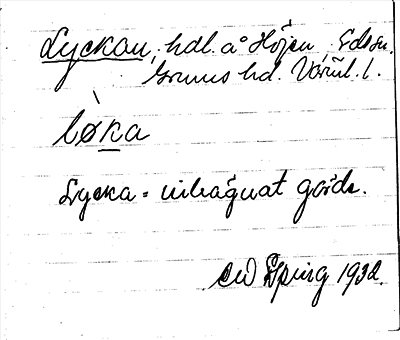 Lyckan, hdl. å Höjen, Edsv.
Grums hd. Värml. l.
lø̀ka
Lycka = inhägnat gärde.
CW Spurg 1932.